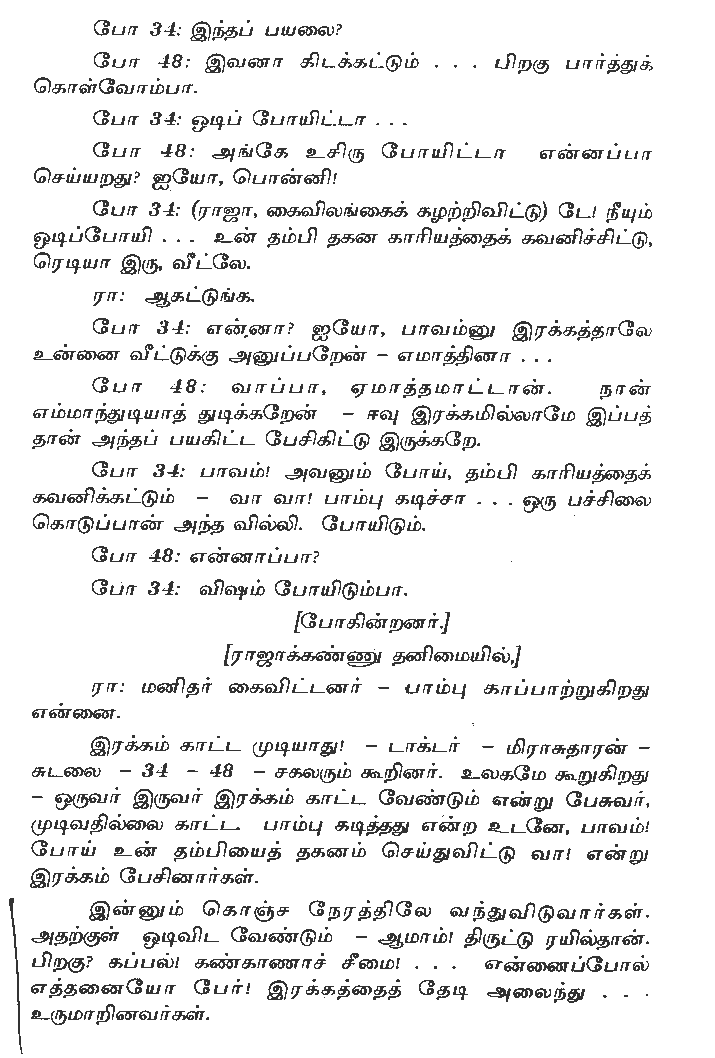 போ 34: இந்தப் பயலை?
போ 48: இவனா கிடக்கட்டும் . . . பிறகு பார்த்துக்
கொள்வோம்பா.
போ 34: ஓடிப் போயிட்டா . . .
போ 48: அங்கே உசிரு போயிட்டா என்னப்பா
செய்யறது? ஐயோ, பொன்னி!
போ 34: (ராஜா, கைவிலங்கைக் கழற்றிவிட்டு) டே! நீயும்
ஓடிப்போயி . . . உன் தம்பி தகன காரியத்தைக் கவனிச்சிட்டு,
ரெடியா இரு, வீட்லே.
ரா: ஆகட்டுங்க.
போ 34: என்னா? ஐயோ, பாவம்னு இரக்கத்தாலே
உன்னை வீட்டுக்கு அனுப்பறேன் – எமாத்தினா . . .
போ 48: வாப்பா, ஏமாத்தமாட்டான். நான்
எம்மாந்துடியாத் துடிக்கறேன் – ஈவு இரக்கமில்லாமே இப்பத்
தான் அந்தப் பயகிட்ட பேசிகிட்டு இருக்கறே.
போ 34: பாவம்! அவனும் போய், தம்பி காரியத்தைக்
கவனிக்கட்டும் – வா வா! பாம்பு கடிச்சா . . . ஒரு பச்சிலை
கொடுப்பான் அந்த வில்லி. போயிடும்.
போ 48: என்னாப்பா?
போ 34: விஷம் போயிடும்பா.
[போகின்றனர்.]
[ராஜாக்கண்ணு தனிமையில்,]
ரா: மனிதர் கைவிட்டனர் – பாம்பு காப்பாற்றுகிறது
என்னை.
இரக்கம் காட்ட முடியாது! – டாக்டர் – மிராசுதாரன் –
சுடலை – 34 – 48 – சகலரும் கூறினர். உலகமே கூறுகிறது
– ஒருவர் இருவர் இரக்கம் காட்ட வேண்டும் என்று பேசுவர்,
முடிவதில்லை காட்ட. பாம்பு கடித்தது என்ற உடனே, பாவம்!
போய் உன் தம்பியைத் தகனம் செய்துவிட்டு வா! என்று
இரக்கம் பேசினார்கள்.
இன்னும் கொஞ்ச நேரத்திலே வந்துவிடுவார்கள்.
அதற்குள் ஓடிவிட வேண்டும் – ஆமாம்! திருட்டு ரயில்தான்.
பிறகு? கப்பல்! கண்காணாச் சீமை! . . . என்னைப்போல்
எத்தனையோ பேர்! இரக்கத்தைத் தேடி அலைந்து . . .
உருமாறினவர்கள்.